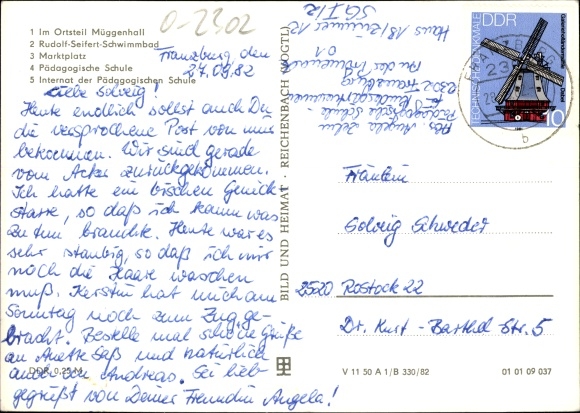 1 Im Ortsteil Müggenhall
2 Rudolf-Seifert-Schwimmbad
3 Marktplatz
4 Pädagogische Schule
5 Internat der Pädagogischen Schule
0-2302
Franzburg, den
27.09.82
Liebe Solveig!
Heute endlich sollst auch Du
die versprochene Post von mir
bekommen. Wir sind gerade
vom Acker zurückgekommen.
Ich hatte ein bischen Genick-
starre, so daß ich kaum was
zu tun brauchte. Heute war es
sehr staubig, so daß ich mir
noch die Haare waschen
muß. Kerstin hat mich am
Sonntag noch zum Zug ge-
bracht. Bestelle mal schöne Grüße
an Anette Saß und natürlich
auch den Andreas. Sei lieb
gegrüßt von Deiner Freundin Angela!
DDR 0,25 M
BILD UND HEIMAT · REICHENBACH (VOGTL)
Abs. Angela
Pädagogische Schule
f. Kindergärtnerinnen
2302 Franzburg
An der Promenade
01
Haus 1B/Zimmer 13
SG I/2
DDR
TECHNISCHE DENKMALE
10
Fräulein
Solveig Schweder
2520 Rostock 22
Dr. Kurt-Barthel Str. 5
V 11 50 A 1/B 330/82
01 01 09 037